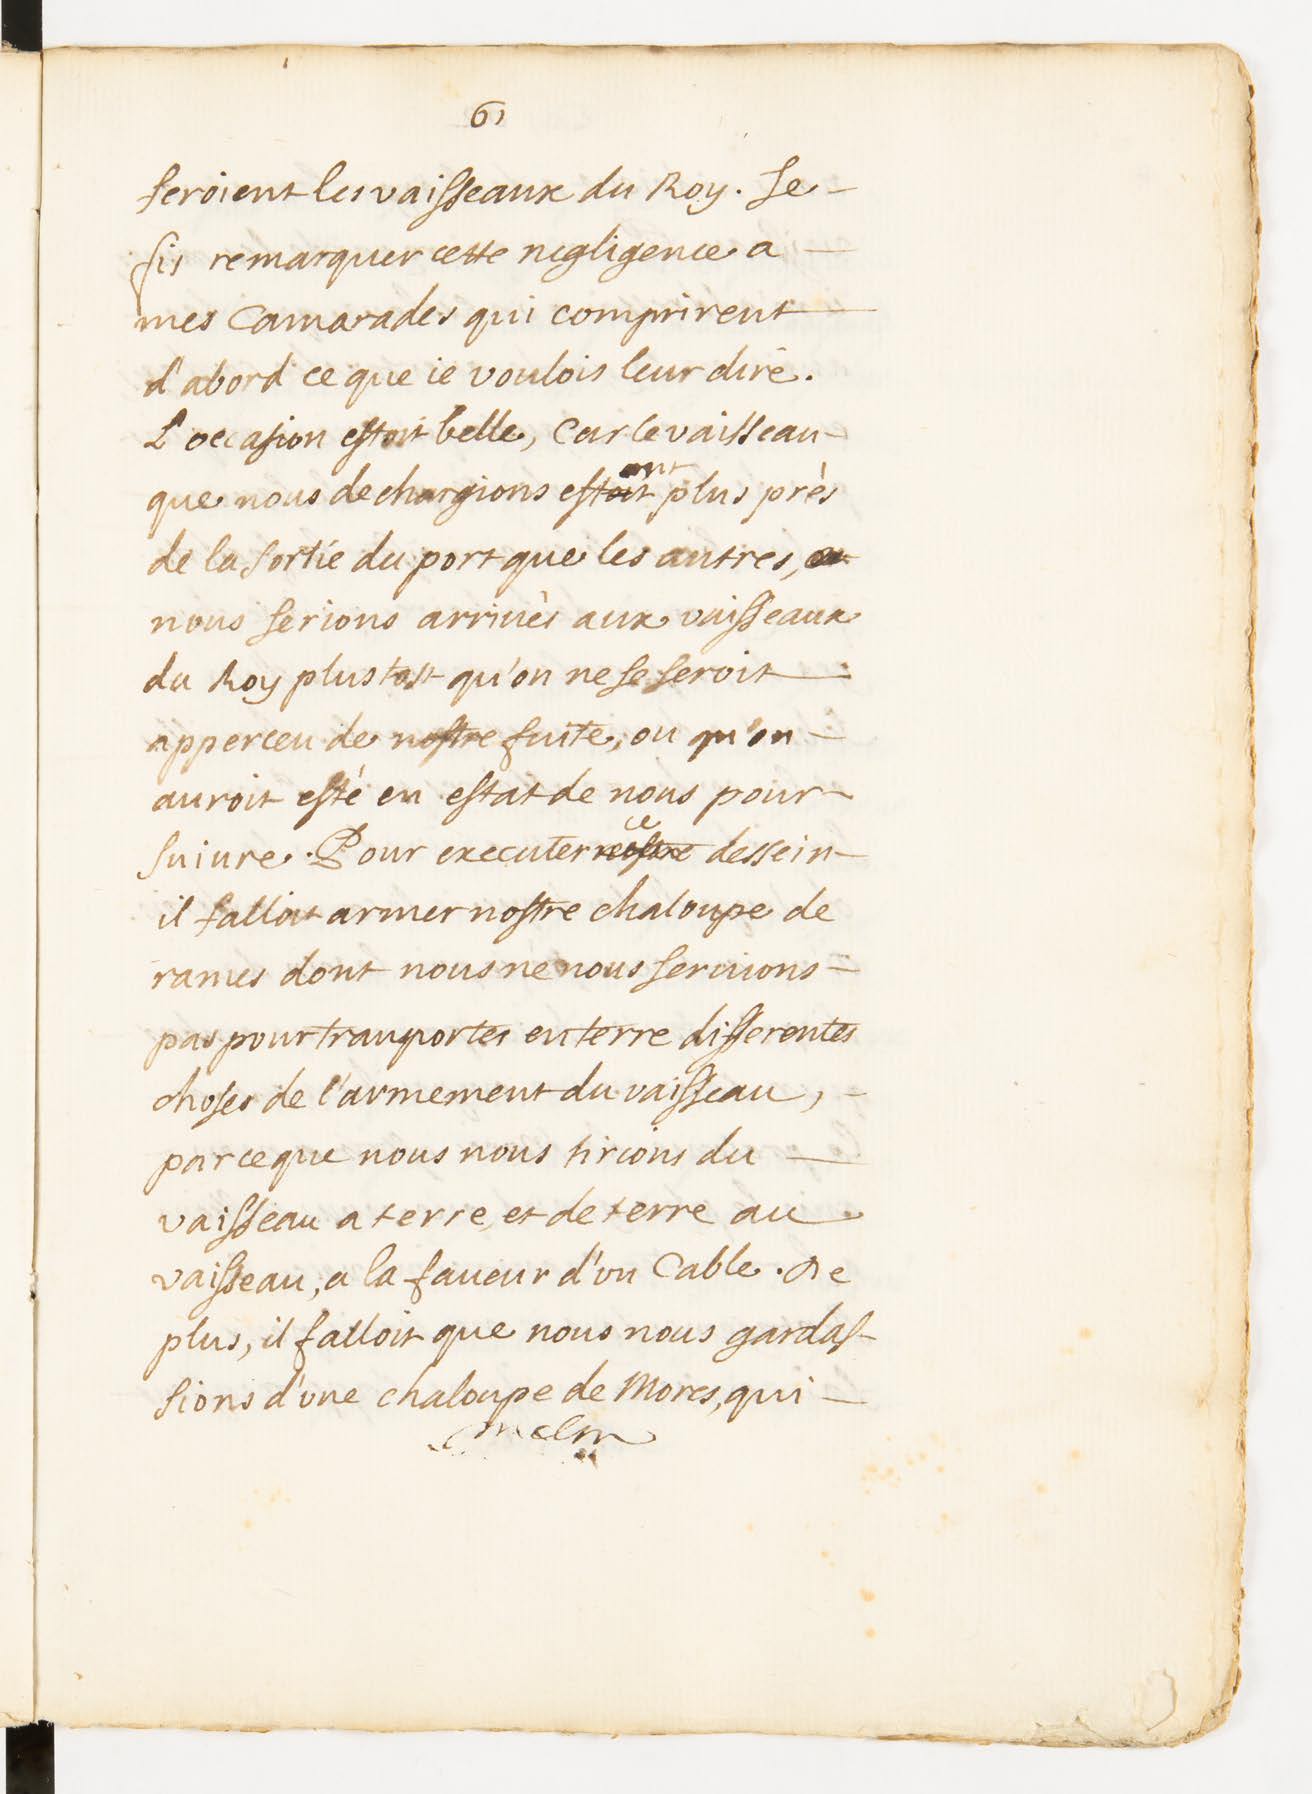 61
feroient les vaisseaux du Roy. Je
fis remarquer cette negligence a
mes Camarades qui comprirent
d'abord ce que ie voulois leur dire.
L'occasion estoit belle, Car le vaisseau
que nous dechargions estoit ant plus près
de la sortie du port que les autres,
nous serions arriuès aux vaisseaux
du Roy plustost qu'on ne se seroit
apperceu de nostre fuite, ou qu'on
auroit esté en estat de nous pour
suiure. Pour executer nostre ce dessein
il falloit armer nostre chaloupe de
rames dont nous ne nous seruions
pas pour tranporter en terre differentes
choses de l'armement du vaisseau,
parceque nous nous tirions du
vaisseau a terre, et de terre au
vaisseau, a la faueur d'vn Cable. De
plus, il falloit que nous nous gardas
sions d'vne chaloupe de Mores, qui